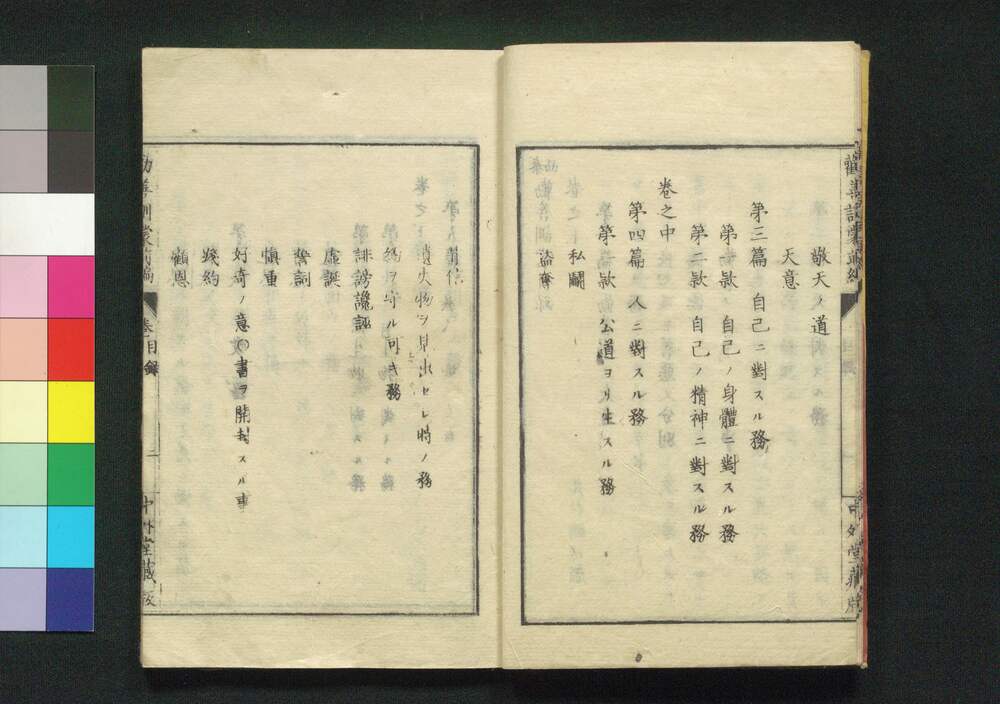 敬天ノ道
天意
第三篇 自己ニ對スル務
第一欵 自己ノ身體ニ對スル務
第二欵 自己ノ精神ニ對スル務
卷之中
第四篇 人ニ對スル務
第一欵 公道ヨリ生スル務
私鬭
盜奪
遺失物ヲ見出セシ時ノ務
約ヲ守ル可キ務
誹謗讒誣
虛誕
誓詞
愼重
好奇ノ意〇書ヲ開封スル事
踐約
顧恩
勸善訓蒙前編 卷一目錄 二 中外堂藏版